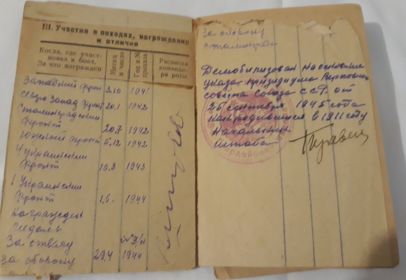 III. Участие в походах, награждения
и отличия
Когда, где участ-
вовал в боях.
За что награжден
Месяц
и число
Год и №
приказа
Роспись
командира
роты
Западный фронт 3.10 1941
Северо Запад фронт 20.1 1942
Сталинградский
фронт 20.7 1942
Южный фронт 5.12 1942
4 украинский
фронт 10.2 1943
1 украинский
фронт 1.5. 1944
награжден
медаль
За отвагу
За оборону 29.4 1944
За оборону
Сталинграда
Демобилизован на основании
указа президиума Верховн
совета Союза ССР. от
25 сентября 1945 года
как родившийся в 1911 году
Начальник
штаба